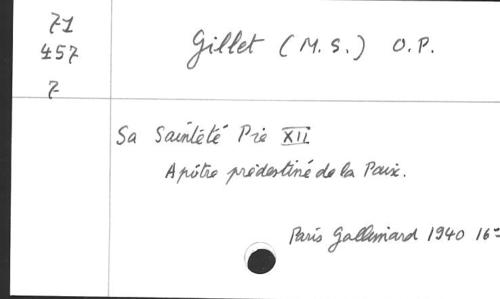 71
457
7
Gillet (M.S.) O.P.
Sa Sainteté Pie XII
Apôtre prédestiné de la Paix.
Paris Gallimard 1940 16°